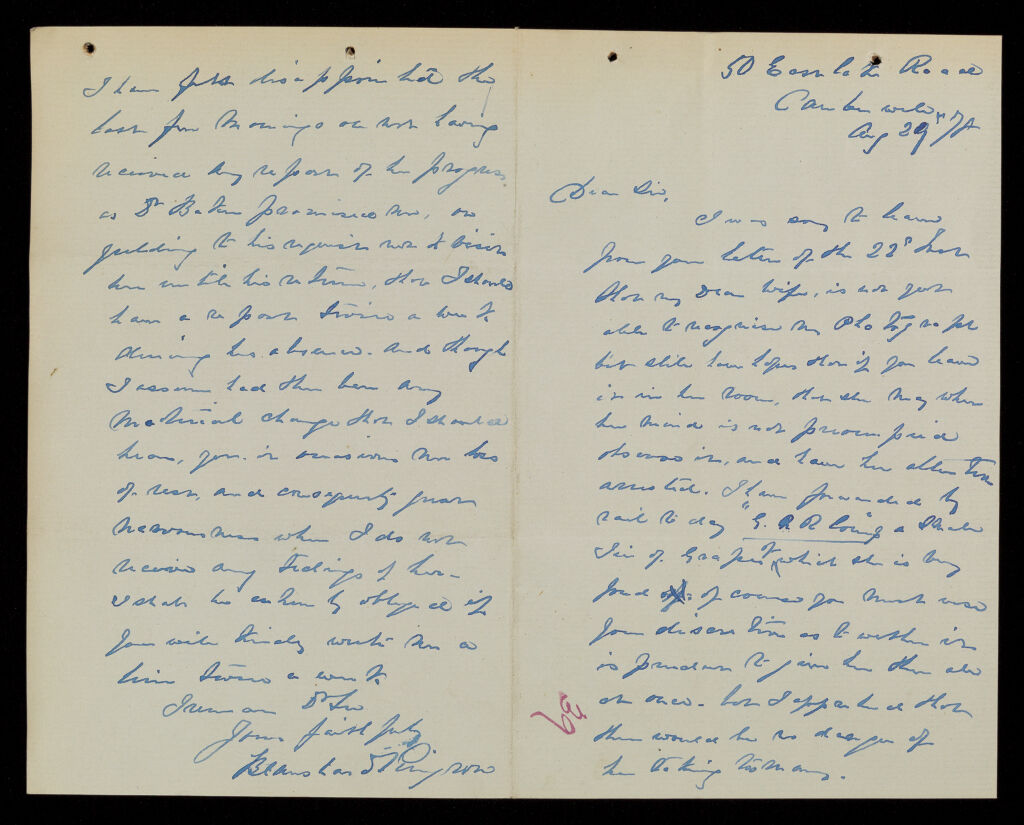 50 East
Road
Aug 29
Dear Sir,
I was sorry to learn
from your letter of the 22d Inst
that my Dear Wife, is not yet
able to recognise my Photograph
but still have hopes that if you leave
it in her room, that she may when
her mind is not preoccupied
observe it, and have her attention
arrested. I have forwarded by
rail to day "G. E. R" a Small
Tin of Grapes &c which she is very
fond of of course you must use
your discretion as to wether it
is prudent to give her them all
at once. but I apprehend that
there would be no danger of
her taking to many.
63
I have felt disappointed the
last few Mornings on not having
received any report of her progress.
as Dr Baker promised me, on
yielding to his request not to visit
her until his return, that I should
have a report twice a week
during his absence. And though
I assume had there been any
Material change that I should
hear, yet it occasions me loss
of rest, and consequently great
nervousness when I do not
receive any tidings of her—
I shall be extremely obliged if
you will kindly write me a
line twice a week
I remain Dr Sir
Yours faithfully